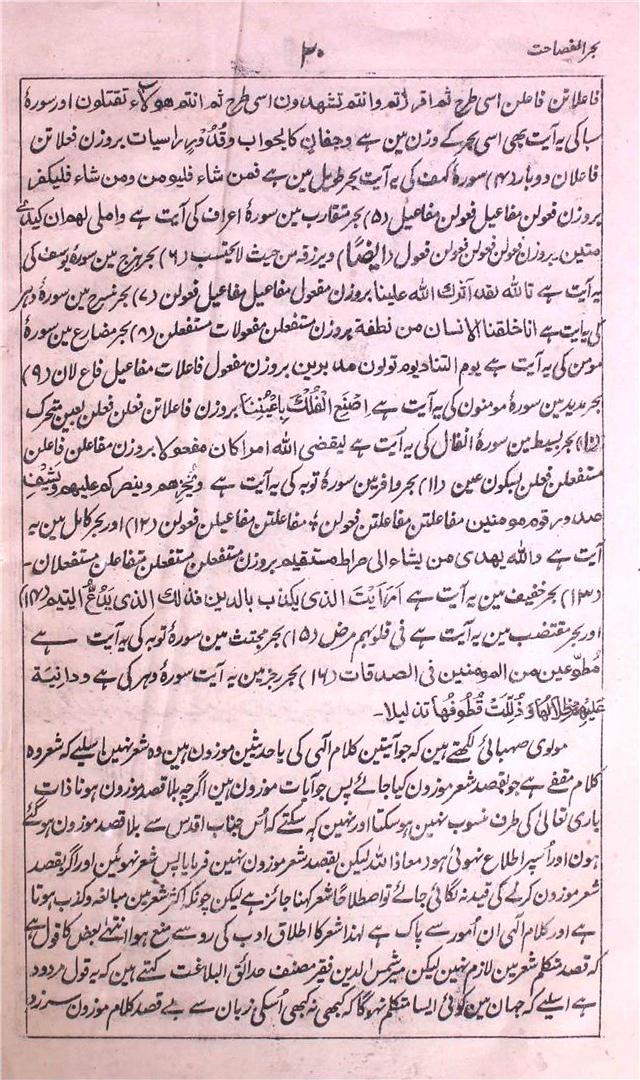 بحر الفصاحت
۳۰
فاعلاتن فاعلن اسی طرح ثم اقررتم وانتم تشهدون اسی طرح ثم انتم هؤلاء تقتلون اور سورۂ
سبا کی یہ آیت بھی اسی بحر کے وزن مین ہے وجفان کالجواب وقدور راسیات بروزن فعلاتن
فاعلان دوبار (۴) سورۂ کہف کی یہ آیت بحر طویل مین ہے فمن شاء فلیومن ومن شاء فلیکفر
بروزن فعولن مفاعیل فعولن مفاعیل (۵) بحر متقارب مین سورۂ اعراف کی آیت ہے واملی لهم ان کیدی
متین بروزن فعولن فعولن فعولن فعول (ایضًا) ویرزقه من حیث لا یحتسب (۶) بحر ہزج مین سورۂ یوسف کی
یہ آیت ہے تالله لقد آثرك الله علینا بروزن مفعول مفاعیل مفاعیل فعولن (۷) بحر منسرح مین سورۂ دہر
کی یہ آیت ہے انا خلقنا الانسان من نطفة بروزن مستفعلن مفعولات مستفعلن (۸) بحر مضارع مین سورۂ
مومن کی یہ آیت ہے یوم التناد یوم تولون مدبرین بروزن مفعول فاعلات مفاعیل فاع لان (۹)
بحر مدید مین سورۂ مومنون کی یہ آیت ہے اصْنَعِ الْفُلْكَ بِاَعْیُنِنَا بروزن فاعلاتن فعلن فعلن بعین متحرک
(۱۰) بحر بسیط مین سورۂ انفال کی یہ آیت ہے لیقضی الله امرا کان مفعولا بروزن مفاعلن فاعلن
مستفعلن فعلن بسکون عین (۱۱) بحر وافر مین سورۂ توبہ کی یہ آیت ہے ویخزهم وینصرکم علیهم ویشف
صدور قوم مومنین مفاعلتن مفاعلتن فعولن مفاعلتن مفاعیلن فعولن (۱۲) اور بحر کامل مین یہ
آیت ہے والله یهدی من یشاء الی صراط مستقیم بروزن مستفعلن مستفعلن متفاعلن مستفعلان۔
(۱۳) بحر خفیف مین یہ آیت ہے اَرَاَیتَ الذی یکذب بالدین فذلك الذی یَدُعُّ الیتیم (۱۴)
اور بحر مقتضب مین یہ آیت ہے فی قلوبهم مرض (۱۵) بحر مجتث مین سورۂ توبہ کی یہ آیت ہے
مُطوّعین من المومنین فی الصدقات (۱۶) بحر رجز مین یہ آیت سورۂ دہر کی ہے ودانیة
علیهم ظلالها وَ ذُلِّلَتْ قُطُوفُها تذلیلا۔
مولوی صہبائی لکھتے ہین کہ جو آیتین کلام الٰہی کی یا حدیثین موزون ہین وہ شعر نہین اسلیے کہ شعر وہ
کلام مقفے ہے جو بقصد شعر موزون کیا جائے پس جو آیات موزون ہین اگرچہ بلا قصد موزون ہونا ذات
باری تعالیٰ کی طرف منسوب نہین ہو سکتا اور نہین کہہ سکتے کہ اُس جناب اقدس سے بلا قصد موزون ہو گئے
ہون اور اُسپر اطلاع نہوئی ہو معاذ الله لیکن بقصد شعر موزون نہین فرمایا پس شعر نہوئین اور اگر بقصد
شعر موزون کرنے کی قید نہ لگائی جائے تو اصطلاحًا شعر کہنا جائز ہے لیکن چونکہ اکثر شعر مین مبالغہ وکذب ہوتا
ہے اور کلام الٰہی ان اُمور سے پاک ہے لہذا شعر کا اطلاق ادب کی رو سے منع ہوا انتہے بعض کا قول ہے
کہ قصد متکلم شعر مین لازم نہین لیکن میر شمس الدین فقیر مصنف حدائق البلاغت کہتے ہین کہ یہ قول مردود
ہے اسلیے کہ جہان مین کوئی ایسا متکلم نہوگا کہ کبھی نہ کبھی اُسکی زبان سے بے قصد کلام موزون سرزد